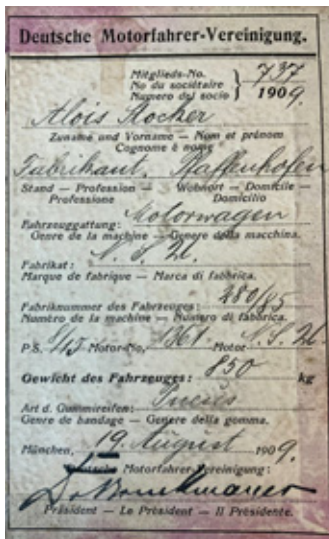 Deutsche Motorfahrer-Vereinigung.
Mitglieds-No. 737
No du sociétaire
Numero del socio } 1909.
Alois Stocker
Zuname und Vorname — Nom et prénom
Cognome è nome
Fabrikant. Pfaffenhofen
Stand — Profession — Wohnort — Domicile —
Professione Domicilio
Fahrzeuggattung: Motorwagen
Genre de la machine — Genere della macchina.
Fabrikat: N. S. U.
Marque de fabrique — Marca di fabbrica.
Fabriknummer des Fahrzeuges: 280/85
Numéro de la machine — Numero di fabbrica.
P.S. Motor-No. Motor
Gewicht des Fahrzeuges: 850 kg
Art d. Gummireifen:
Genre de bandage — Genere della gomma.
München, 19. August 1909.
Deutsche Motorfahrer-Vereinigung:
Präsident — Le Président — Il Presidente.